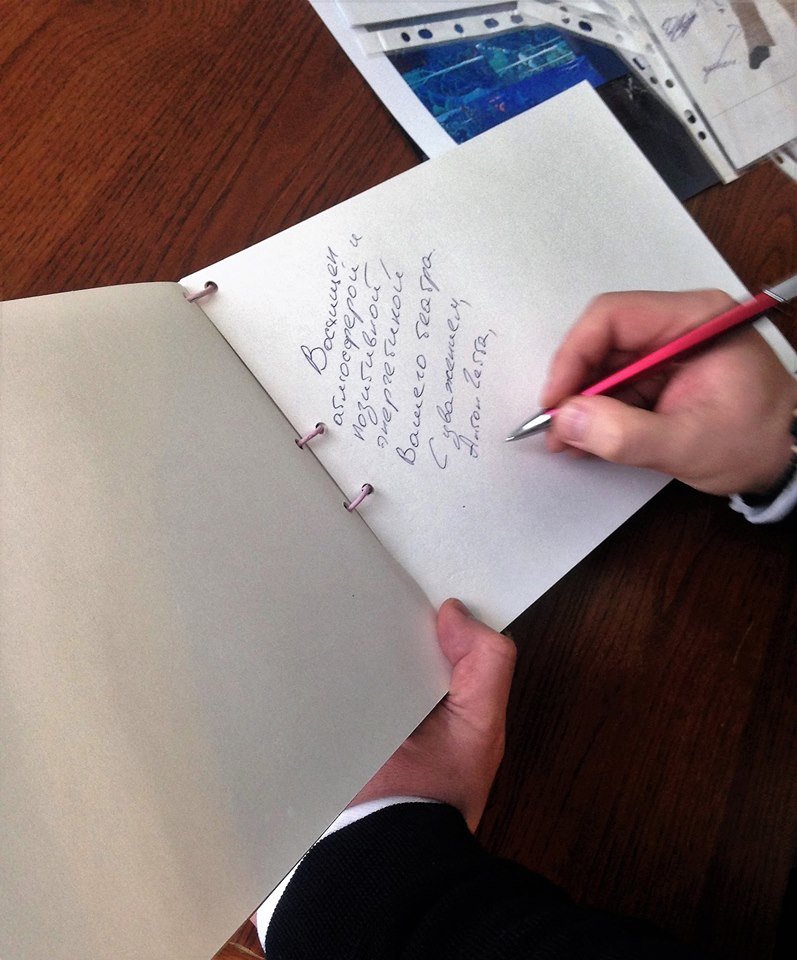 Восхищен
атмосферой и
позитивной
энергетикой
Вашего театра.
С уважением,
Антон